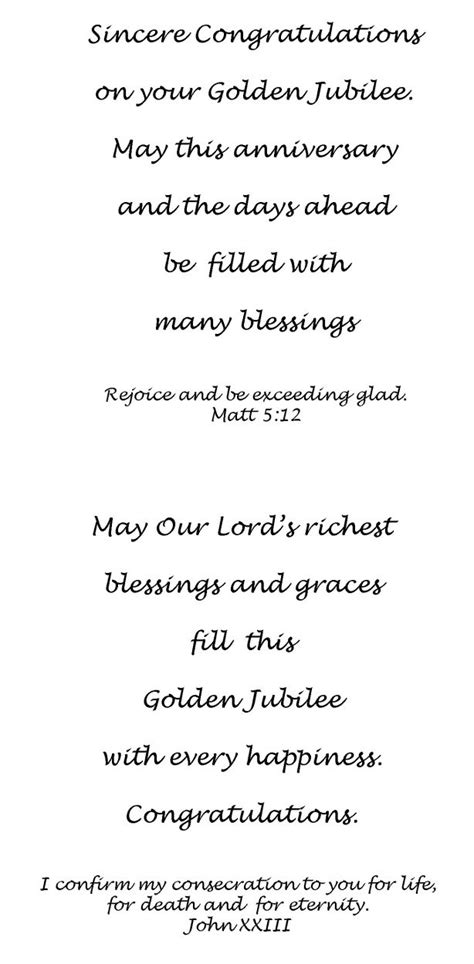 Sincere Congratulations
on your Golden Jubilee.
May this anniversary
and the days ahead
be filled with
many blessings
Rejoice and be exceeding glad.
Matt 5:12
May Our Lord’s richest
blessings and graces
fill this
Golden Jubilee
with every happiness.
Congratulations.
I confirm my consecration to you for life,
for death and for eternity.
John XXIII